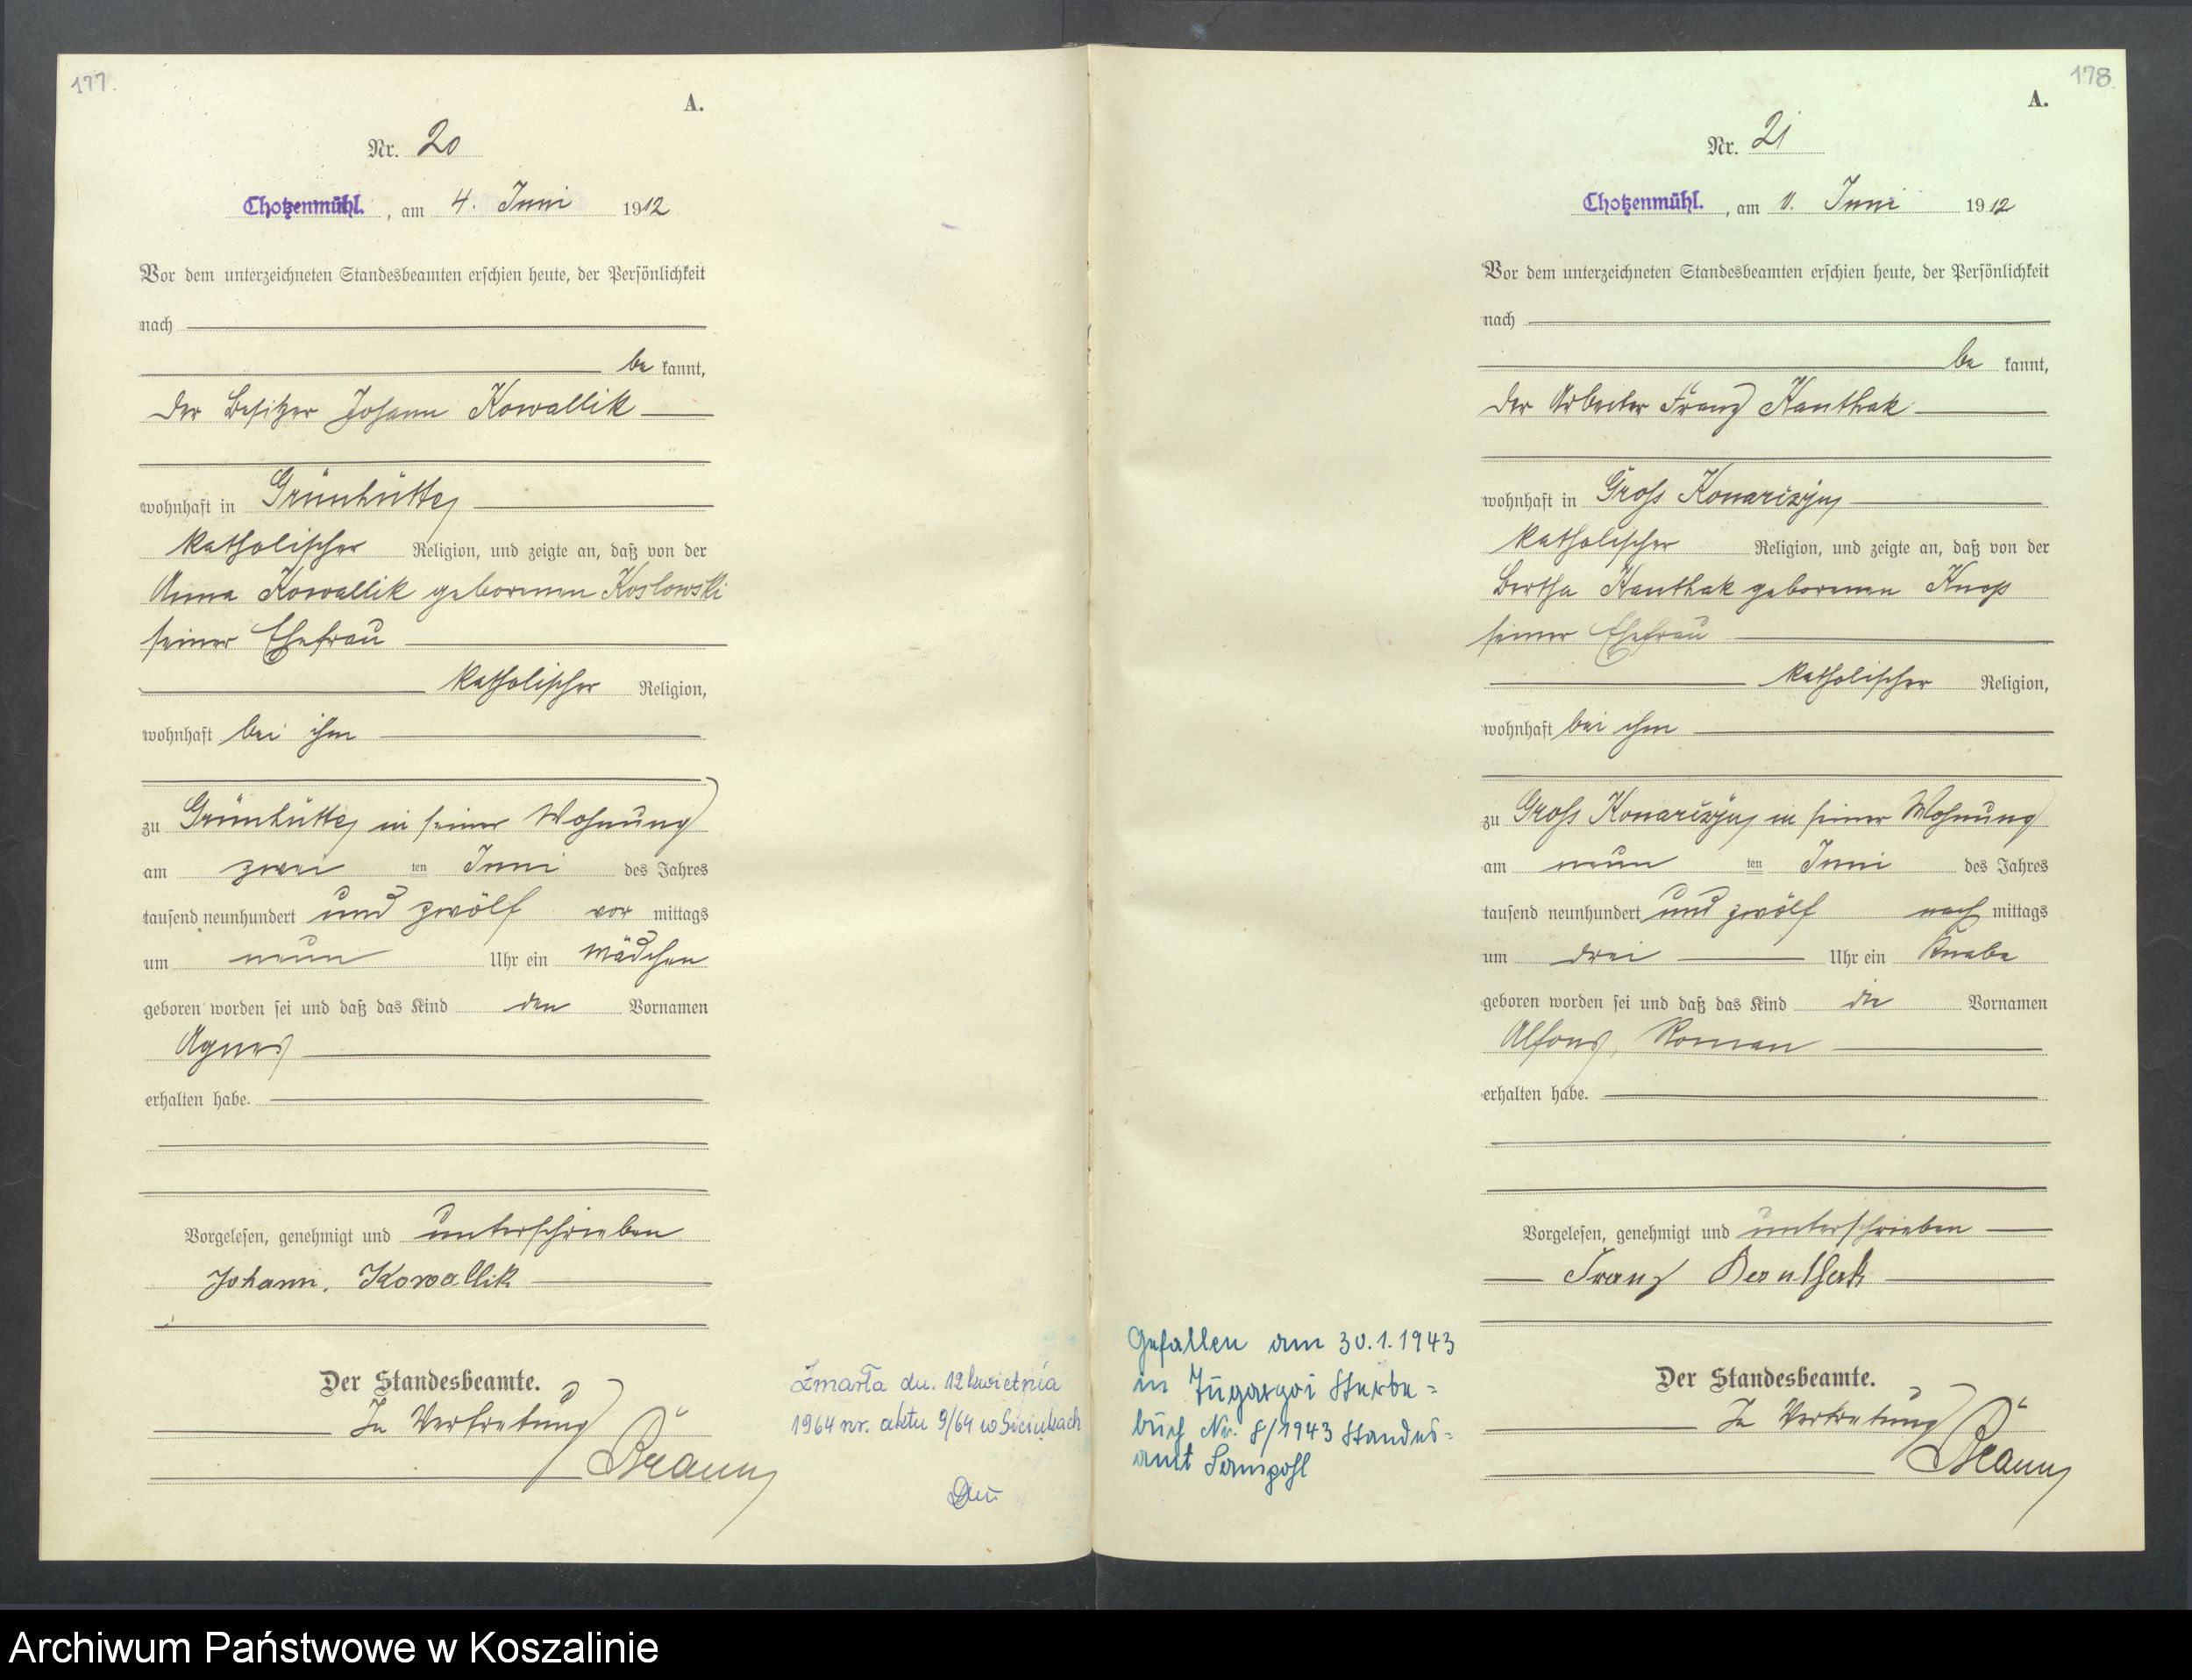 177.
A.
Nr. 20
Chotzenmühl. , am 4. Juni 1912
Vor dem unterzeichneten Standesbeamten erschien heute, der Persönlichkeit
nach
be kannt,
der Besitzer Johann Kowallik
wohnhaft in Grünhütte,
katholischer Religion, und zeigte an, daß von der
Anna Kowallik geborenen Koslowski
seiner Ehefrau
katholischer Religion,
wohnhaft bei ihm
zu Grünhütte, in seiner Wohnung
am zwei ten Juni des Jahres
tausend neunhundert und zwölf vor mittags
um neun Uhr ein Mädchen
geboren worden sei und daß das Kind den Vornamen
Agnes
erhalten habe.
Vorgelesen, genehmigt und unterschrieben
Johann. Kowallik
Der Standesbeamte.
In Vertretung
Zmarła dn. 12 kwietnia
1964 nr. aktu 9/64 w
178
A.
Nr. 21
Chotzenmühl. , am 11. Juni 1912
Vor dem unterzeichneten Standesbeamten erschien heute, der Persönlichkeit
nach
be kannt,
der Arbeiter Franz Kanthak
wohnhaft in Groß Konarczyn,
katholischer Religion, und zeigte an, daß von der
Bertha Kanthak geborenen Knop
seiner Ehefrau
katholischer Religion,
wohnhaft bei ihm
zu Groß Konarczyn, in seiner Wohnung
am neun ten Juni des Jahres
tausend neunhundert und zwölf nach mittags
um drei Uhr ein Knabe
geboren worden sei und daß das Kind die Vornamen
Alfons, Roman
erhalten habe.
Vorgelesen, genehmigt und unterschrieben
Franz Kanthak
Gefallen am 30.1.1943
in Sterbe=
buch Nr. 8/1943 Standes=
amt Sampohl
Der Standesbeamte.
In Vertretung
Archiwum Państwowe w Koszalinie